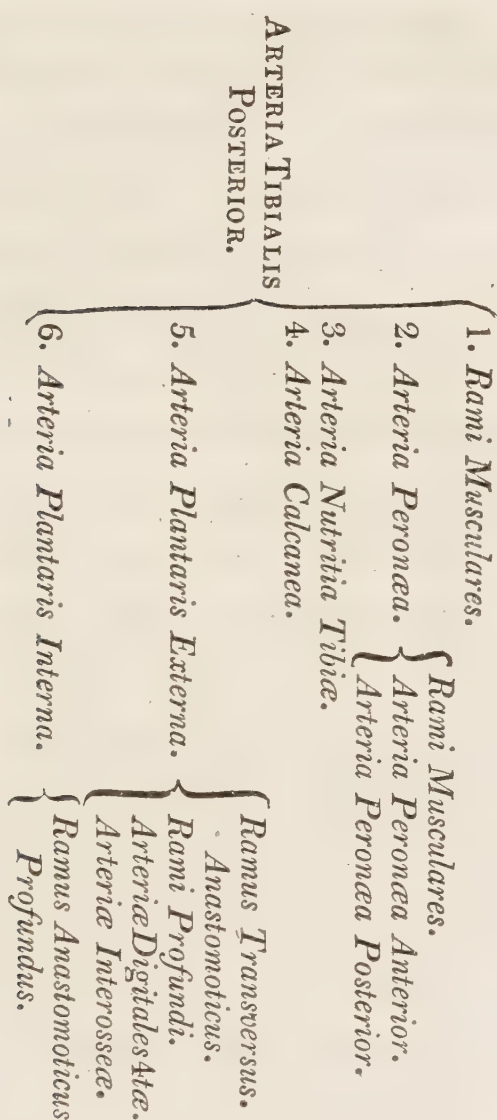 ARTERIA TIBIALIS
POSTERIOR.
1. Rami Musculares.
2. Arteria Peronæa.
Rami Musculares.
Arteria Peronæa Anterior.
Arteria Peronæa Posterior.
3. Arteria Nutritia Tibiæ.
4. Arteria Calcanea.
5. Arteria Plantaris Externa.
Ramus Transversus.
Anastomoticus.
Rami Profundi.
Arteriæ Digitales 4tæ.
Arteriæ Interosseæ.
6. Arteria Plantaris Interna.
Ramus Anastomoticus
Profundus.